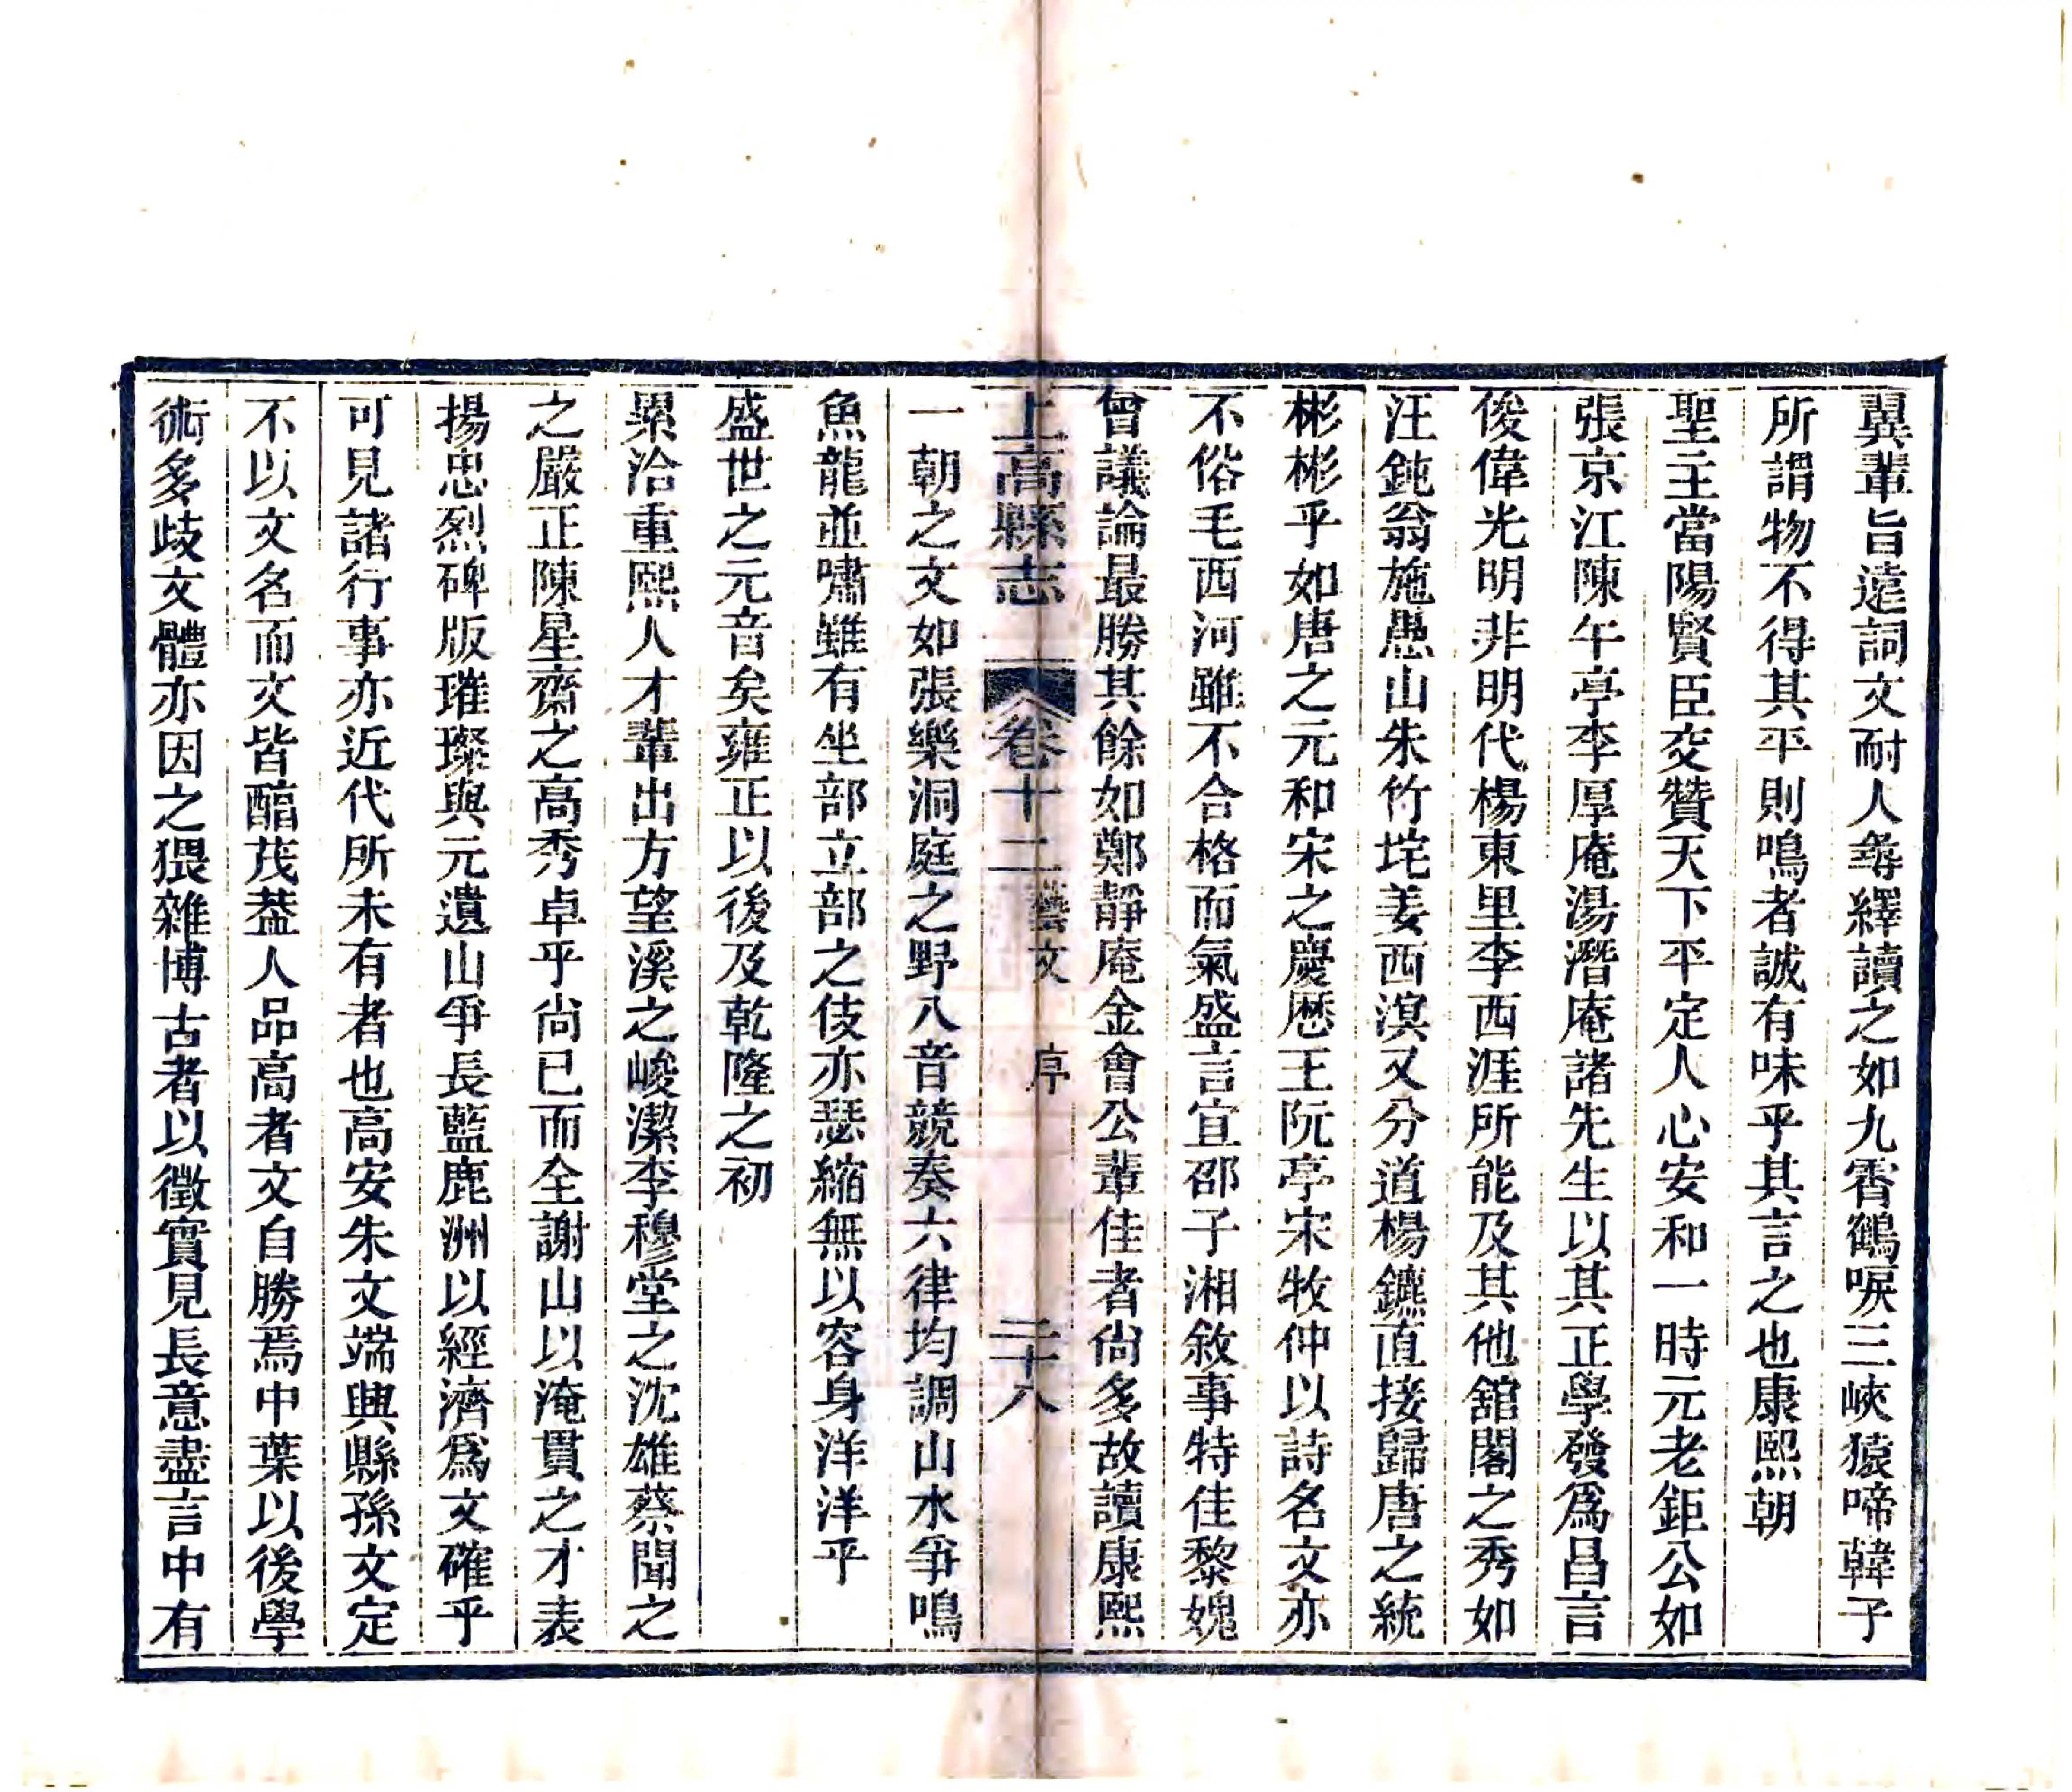 巽輩旨遠詞文耐人尋繹讀之如九霄鶴唳三峽猿啼韓子
所謂物不得其平則鳴者誠有味乎其言之也康熙朝
聖主當陽賢臣交贊天下平定人心安和一時元老鉅公如
張京江陳午亭李厚庵湯潛庵諸先生以其正學發爲昌言
俊偉光明非明代楊東里李西涯所能及其他舘閣之秀如
汪鈍翁施愚山朱竹垞姜西溟又分道楊鑣直接歸唐之統
彬彬乎如唐之元和宋之慶厯王阮亭宋牧仲以詩名文亦
不俗毛西河雖不合格而氣盛言宜邵子湘敘事特佳黎媿
曾議論最勝其餘如鄭靜庵金會公輩佳者尙多故讀康熙
上高縣志 卷十二 藝文 序 二十八
一朝之文如張樂洞庭之野八音競奏六律均調山水爭鳴
魚龍並嘯雖有坐部立部之伎亦瑟縮無以容身洋洋乎
盛世之元音矣雍正以後及乾隆之初
累洽重熙人才輩出方望溪之峻潔李穆堂之沈雄蔡聞之
之嚴正陳星齋之高秀卓乎尙已而全謝山以淹貫之才表
揚忠烈碑版璀璨與元遺山爭長藍鹿洲以經濟爲文確乎
可見諸行事亦近代所未有者也高安朱文端興縣孫文定
不以文名而文皆醕茂葢人品高者文自勝焉中葉以後學
術多歧文體亦因之猥雜博古者以徵實見長意盡言中有